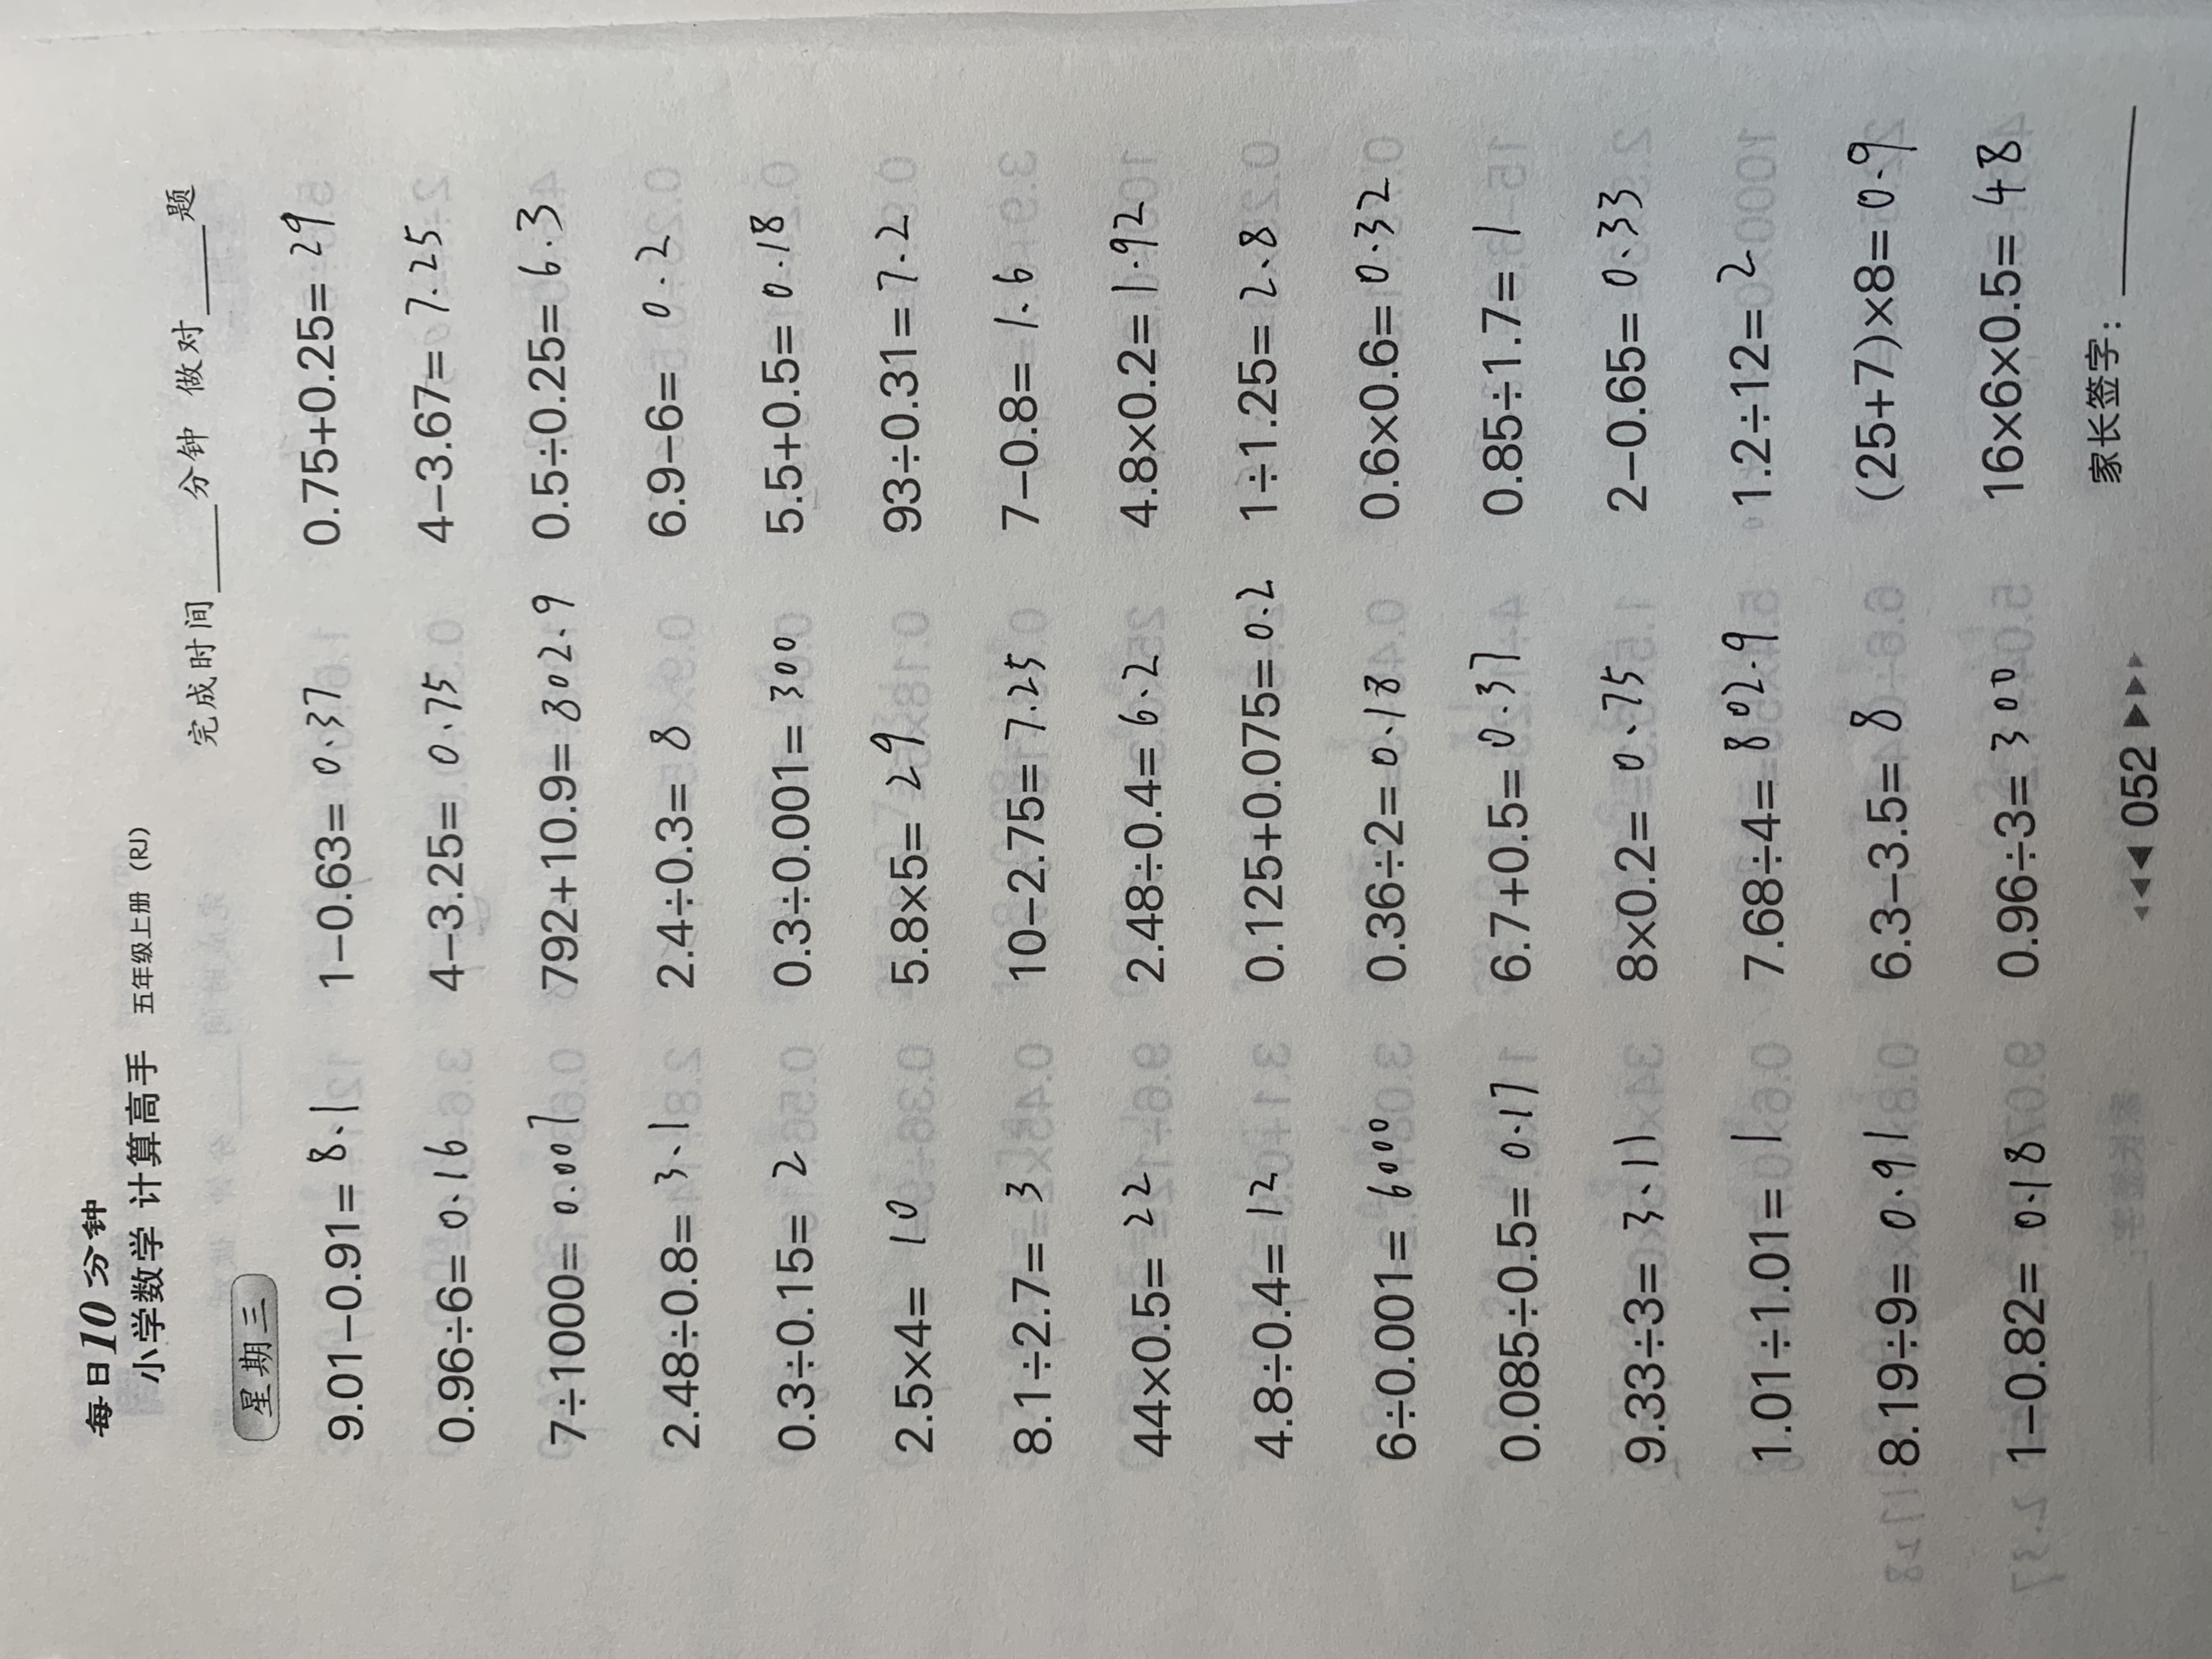 每日10分钟
小学数学 计算高手 五年级上册（RJ）
完成时间____分钟 做对____题
星期三
9.01−0.91= 8.1 1−0.63= 0.37 0.75+0.25= 29
0.96÷6= 0.16 4−3.25= 0.75 4−3.67= 7.25
7÷1000= 0.007 792+10.9= 802.9 0.5÷0.25= 6.3
2.48÷0.8= 3.1 2.4÷0.3= 8 6.9−6= 0.2
0.3÷0.15= 2 0.3÷0.001= 300 5.5+0.5= 0.18
2.5×4= 10 5.8×5= 29 93÷0.31= 7.2
8.1÷2.7= 3 10−2.75= 7.25 7−0.8= 1.6
44×0.5= 22 2.48÷0.4= 6.2 4.8×0.2= 1.92
4.8÷0.4= 12 0.125+0.075= 0.2 1÷1.25= 2.8
6÷0.001= 6000 0.36÷2= 0.18 0.6×0.6= 0.32
0.085÷0.5= 0.17 6.7+0.5= 0.37 0.85÷1.7= 1
9.33÷3= 3.11 8×0.2= 0.75 2−0.65= 0.33
1.01÷1.01= 1 7.68÷4= 802.9 1.2÷12= 2
8.19÷9= 0.91 6.3−3.5= 8 (25+7)×8= 0.9
1−0.82= 0.18 0.96÷3= 300 16×6×0.5= 48
家长签字：____
◀◀◀ 052 ▶▶▶